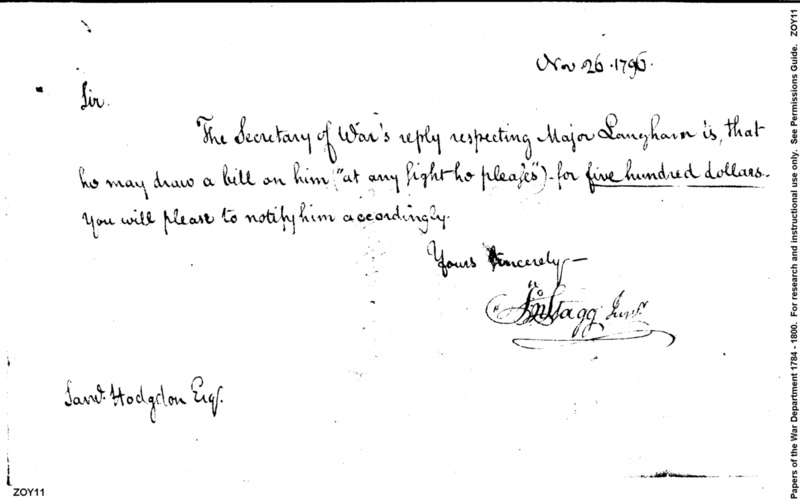 Nov 26. 1796.
Sir.
The Secretary of War's reply respecting Major Langham is, that
he may draw a bill on him ("at any sight he pleases")—for five hundred dollars.
You will please to notify him accordingly.
Yours Sincerely—
Jno Stagg Junr.
Saml. Hodgdon Esqr.
ZOY11
Papers of the War Department 1784 - 1800. For research and instructional use only. See Permissions Guide. ZOY11